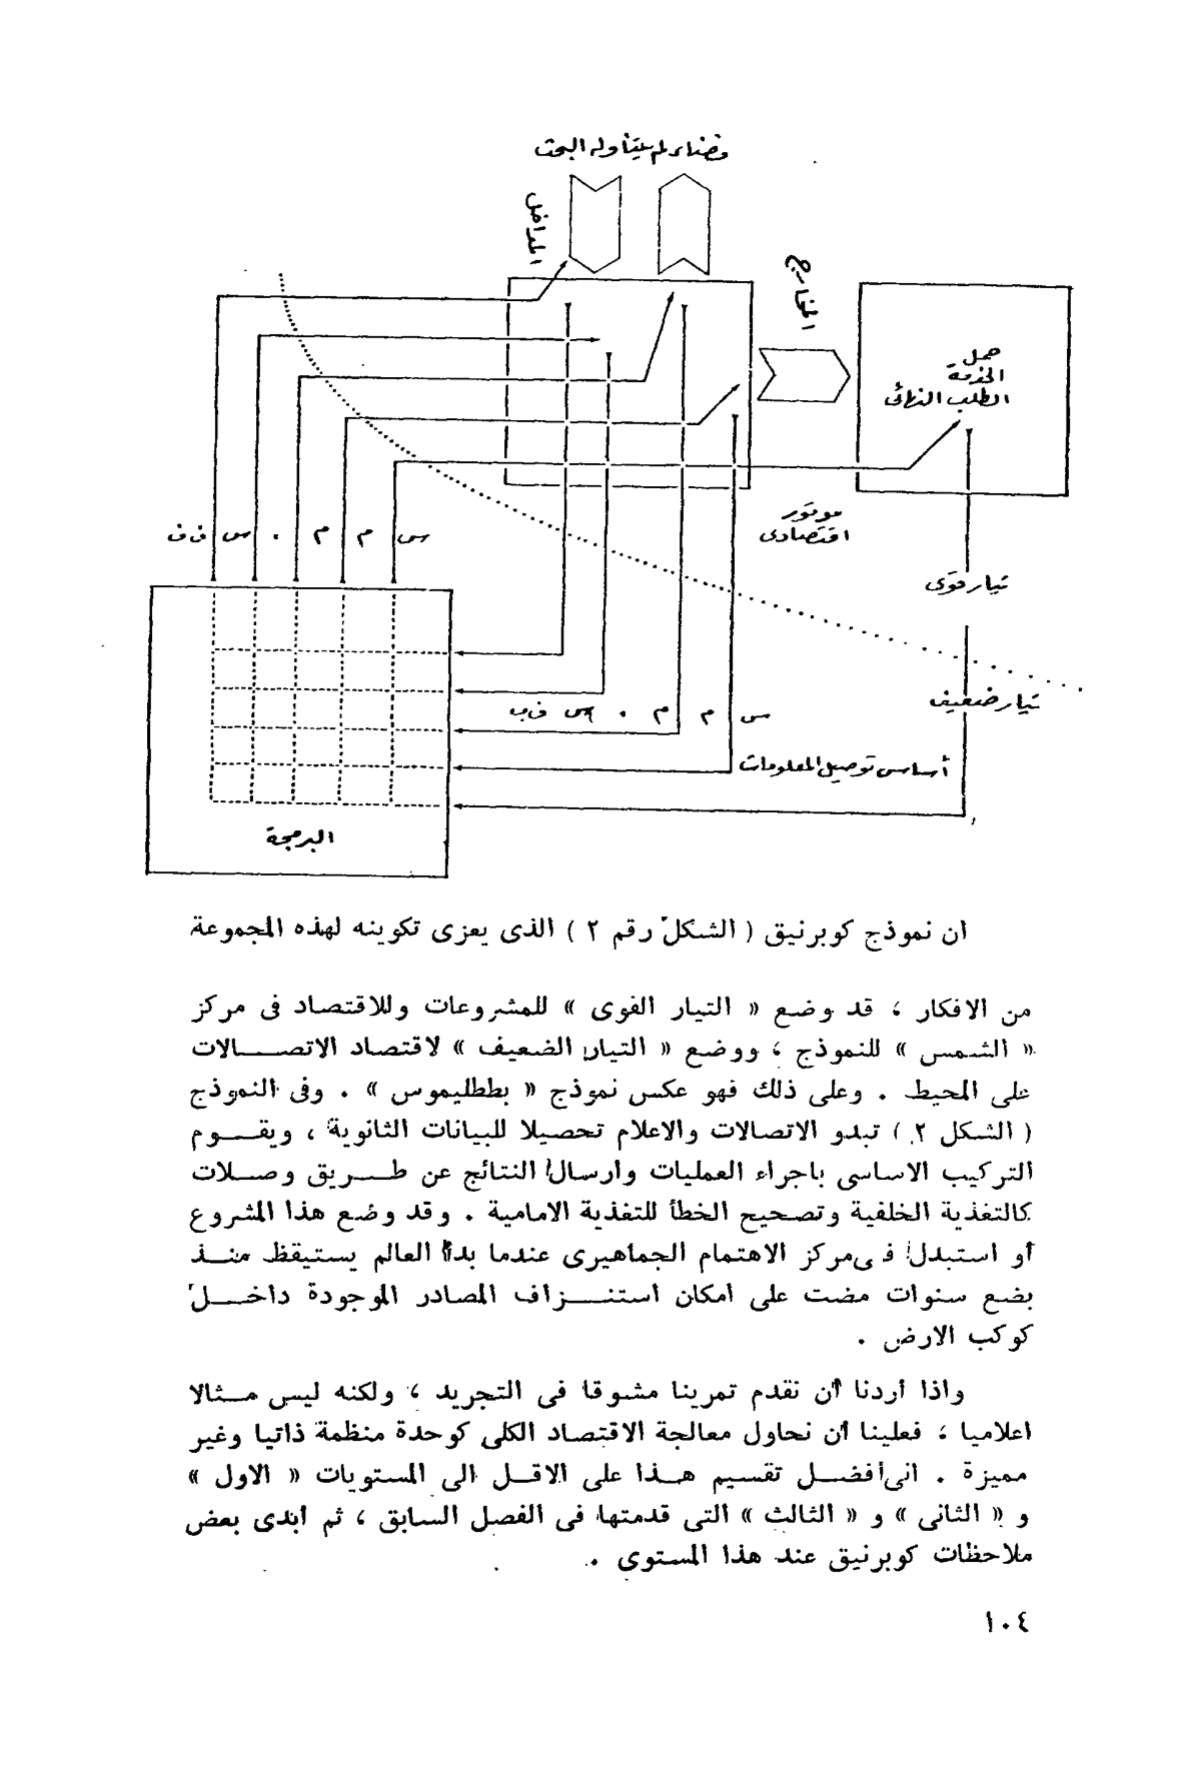 فضاء لم يتناوله البحث
المداخل
المخارج
حمل
الخدمة
الطلب النهائى
موتور
اقتصادى
س م م . س ف ف
تيار قوى
تيار ضعيف
س م م . س ف ف
أساس توصيل المعلومات
البرمجة
ان نموذج كوبرنيق ( الشكل رقم ٢ ) الذى يعزى تكوينه لهذه المجموعة
من الافكار ، قد وضع « التيار القوى » للمشروعات وللاقتصاد فى مركز
« الشمس » للنموذج ، ووضع « التيار الضعيف » لاقتصاد الاتصـــالات
على المحيط . وعلى ذلك فهو عكس نموذج « بططليموس » . وفى النموذج
( الشكل ٢ ) تبدو الاتصالات والاعلام تحصيلا للبيانات الثانوية ، ويقـــوم
التركيب الاساسى باجراء العمليات وارسال النتائج عن طـــريق وصـــلات
كالتغذية الخلفية وتصحيح الخطأ للتغذية الامامية . وقد وضع هذا المشروع
أو استبدل فى مركز الاهتمام الجماهيرى عندما بدأ العالم يستيقظ منـــذ
بضع سنوات مضت على امكان استنـــزاف المصادر الموجودة داخـــل
كوكب الارض .
واذا أردنا أن نقدم تمرينا مشوقا فى التجريد ، ولكنه ليس مـــثالا
اعلاميا ، فعلينا أن نحاول معالجة الاقتصاد الكلى كوحدة منظمة ذاتيا وغير
مميزة . انى أفضـــل تقسيم هـــذا على الاقـــل الى المستويات « الاول »
و « الثانى » و « الثالث » التى قدمتها فى الفصل السابق ، ثم أبدى بعض
ملاحظات كوبرنيق عند هذا المستوى .
١٠٤